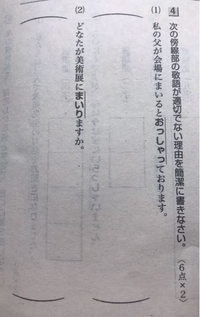 4 次の傍線部の敬語が適切でない理由を簡潔に書きなさい。(6点×2)
(1) 私の父が会場にまいるとおっしゃっております。
(2) どなたが美術展にまいりますか。